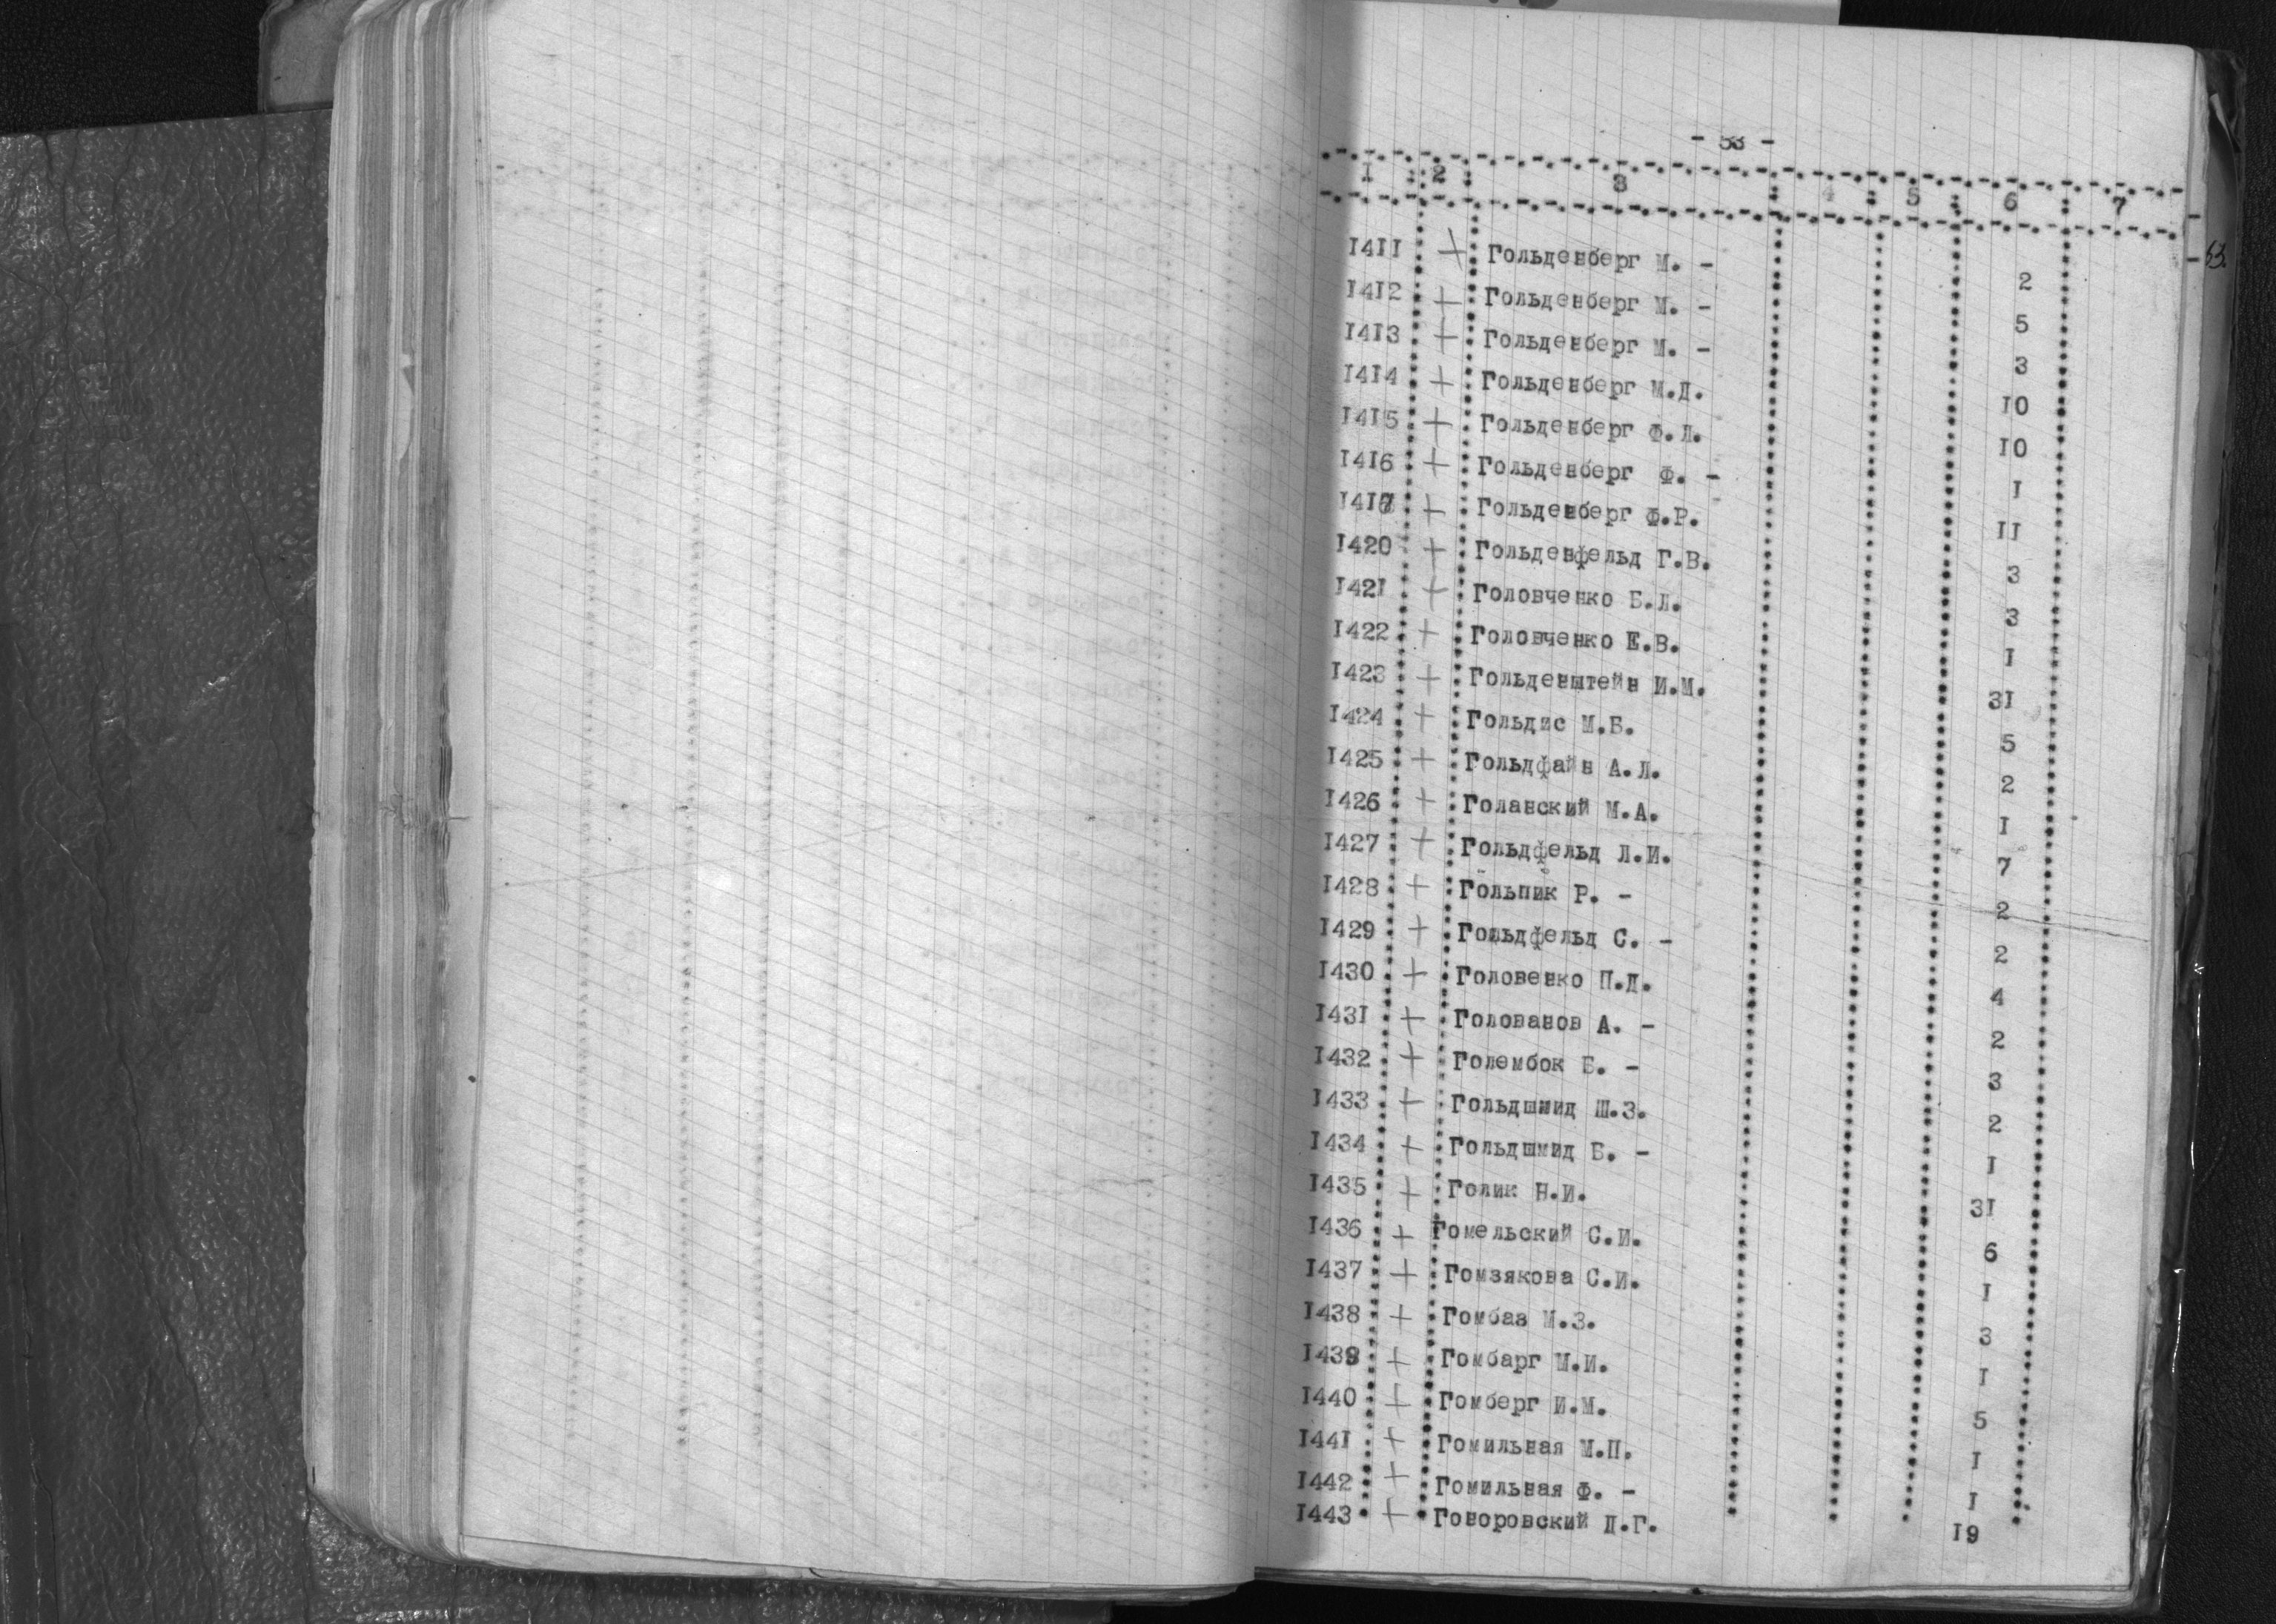 - 53 -
I 2 3 4 5 6 7
53.
I4II + Гольденберг М. - 2
I4I2 + Гольденберг М. - 5
I4I3 + Гольденберг М. - 3
I4I4 + Гольденберг М.Д. I0
I4I5 + Гольденберг Ф.Л. I0
I4I6 + Гольденберг Ф. - I
I4I7 + Гольденберг Ф.Р. II
I420 + Гольденфельд Г.В. 3
I42I + Головченко Б.Л. 3
I422 + Головченко Е.В. I
I423 + Гольденштейн И.М. 3I
I424 + Гольдис М.Б. 5
I425 + Гольдфайн А.Л. 2
I426 + Голанский М.А. I
I427 + Гольдфельд Л.И. 7
I428 + Гольпик Р. - 2
I429 + Гольдфельд С. - 2
I430 + Головенко П.Д. 4
I43I + Голованов А. - 2
I432 + Голембок Б. - 3
I433 + Гольдшмид Ш.З. 2
I434 + Гольдшмид Б. - I
I435 + Голик Н.И. 3I
I436 + Гомельский С.И. 6
I437 + Гомзякова С.И. I
I438 + Гомбаз М.З. 3
I439 + Гомбарг М.И. I
I440 + Гомберг И.М. 5
I44I + Гомильная М.П. I
I442 + Гомильная Ф. - I
I443 + Говоровский П.Г. I9